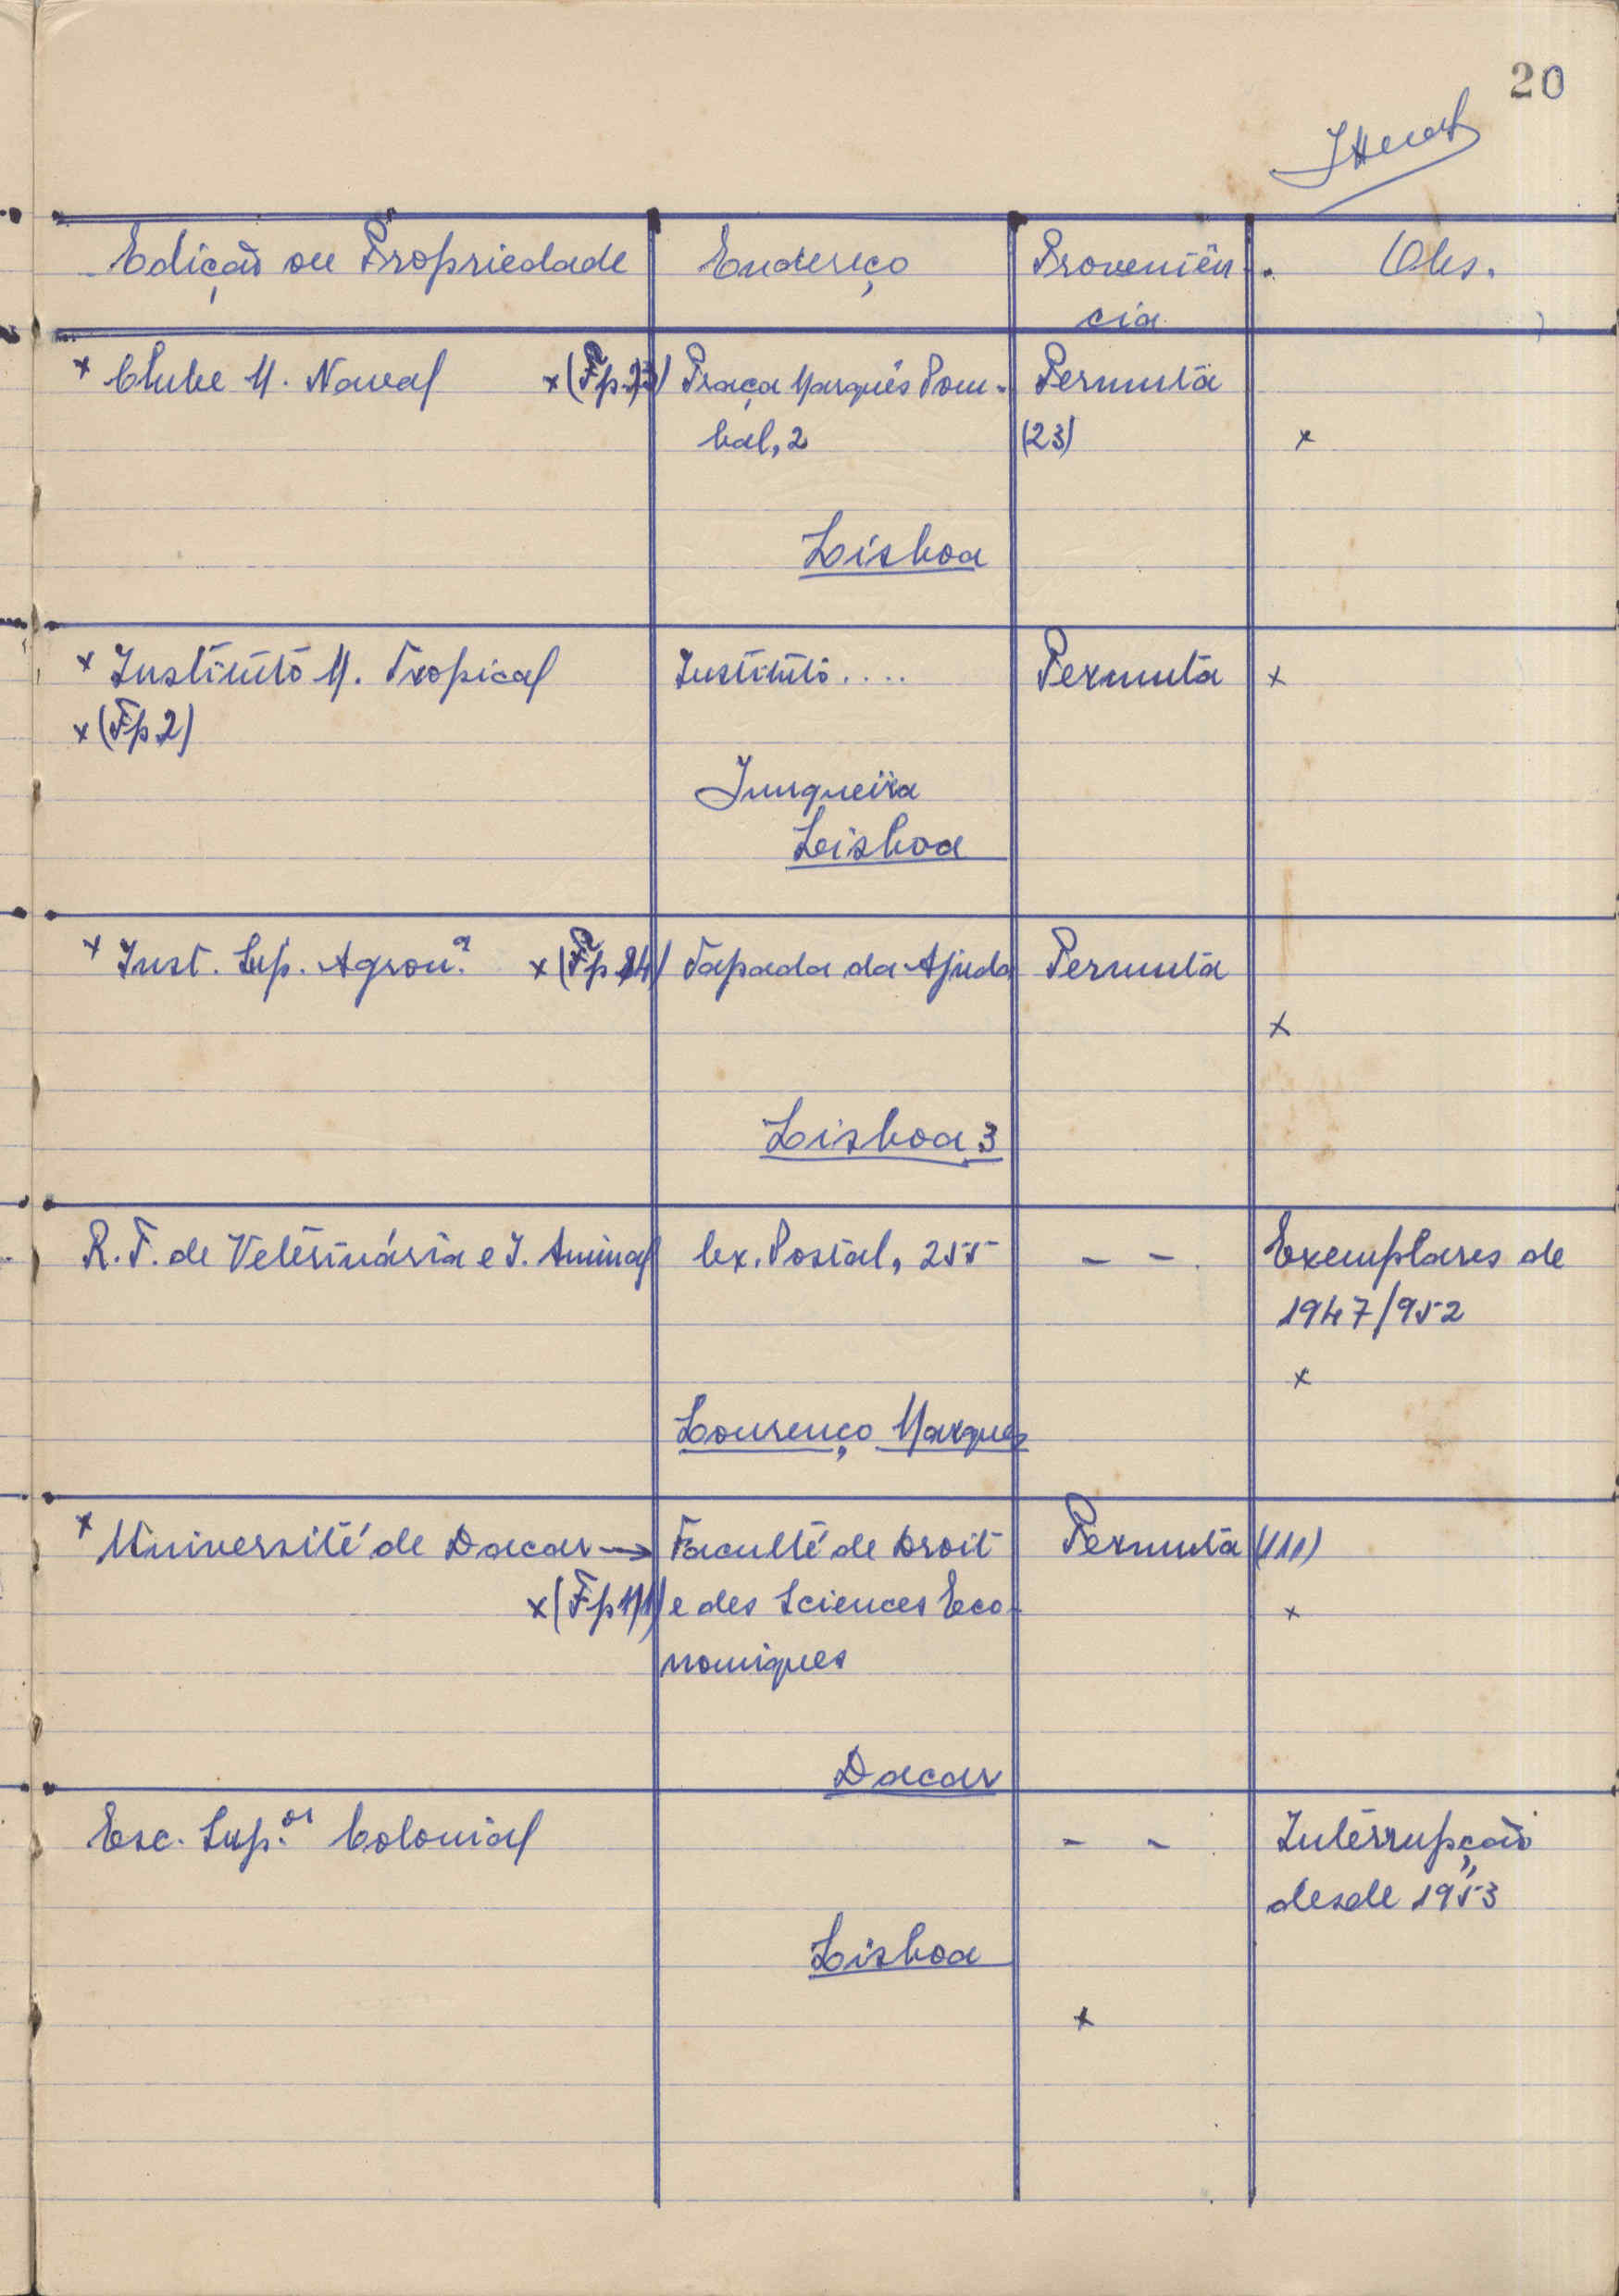 20
Edição ou Propriedade Endereço Proveniên- Obs.
cia
x Clube M. Naval x (Fp 23) Praça Marquês Pom- Permuta
bal, 2 (23) x
Lisboa
x Instituto M. Tropical Instituto.... Permuta x
x (Fp 2)
Junqueira
Lisboa
x Inst. Sup. Agron.ª x (Fp 24) Tapada da Ajuda Permuta
x
Lisboa 3
R. T. de Veterinária e I. Animal Cx. Postal, 255 - - Exemplares de
1947/952
x
Lourenço Marques
x Université de Dacar → Faculté de Droit Permuta (111)
x (Fp 111) e des Sciences Eco- x
nomiques
Dacar
Esc. Sup.or Colonial - - Interrupção
desde 1953
Lisboa
x